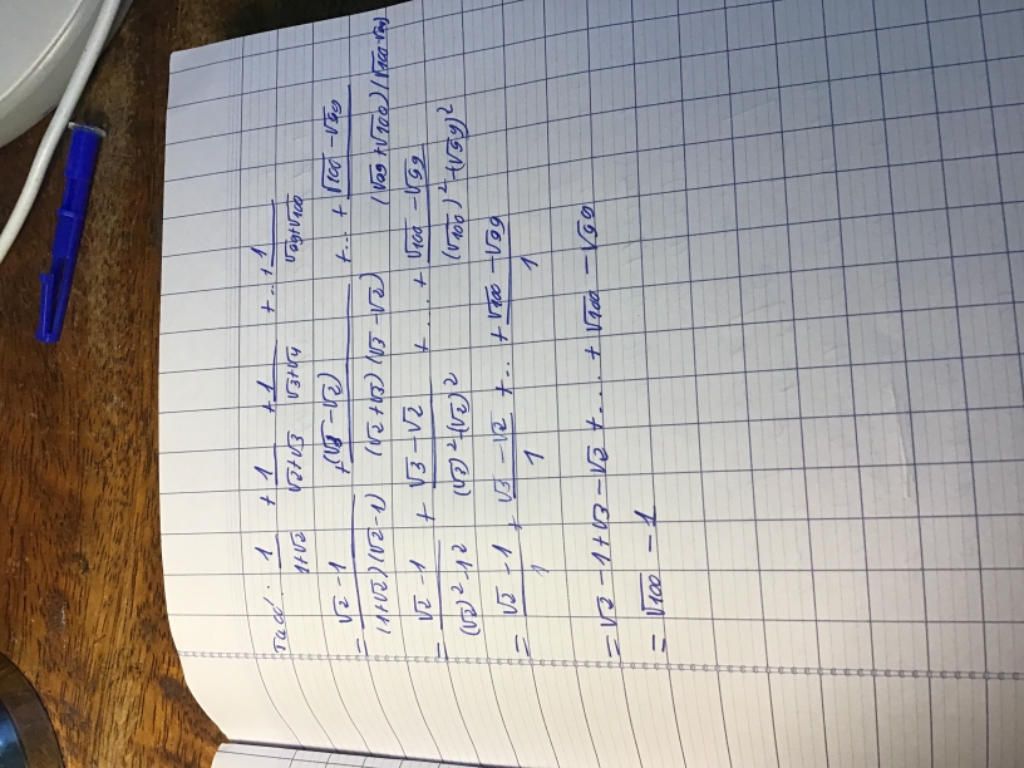 Ta có: 1/(1+√2) + 1/(√2+√3) + 1/(√3+√4) + ... + 1/(√99+√100)
= (√2 - 1)/((1+√2)(√2-1)) + (√3 - √2)/((√2+√3)(√3-√2)) + ... + (√100 - √99)/((√99+√100)(√100-√99))
= (√2 - 1)/((√2)²-1²) + (√3 - √2)/((√3)²-(√2)²) + ... + (√100 - √99)/((√100)²-(√99)²)
= (√2 - 1)/1 + (√3 - √2)/1 + ... + (√100 - √99)/1
= √2 - 1 + √3 - √2 + ... + √100 - √99
= √100 - 1